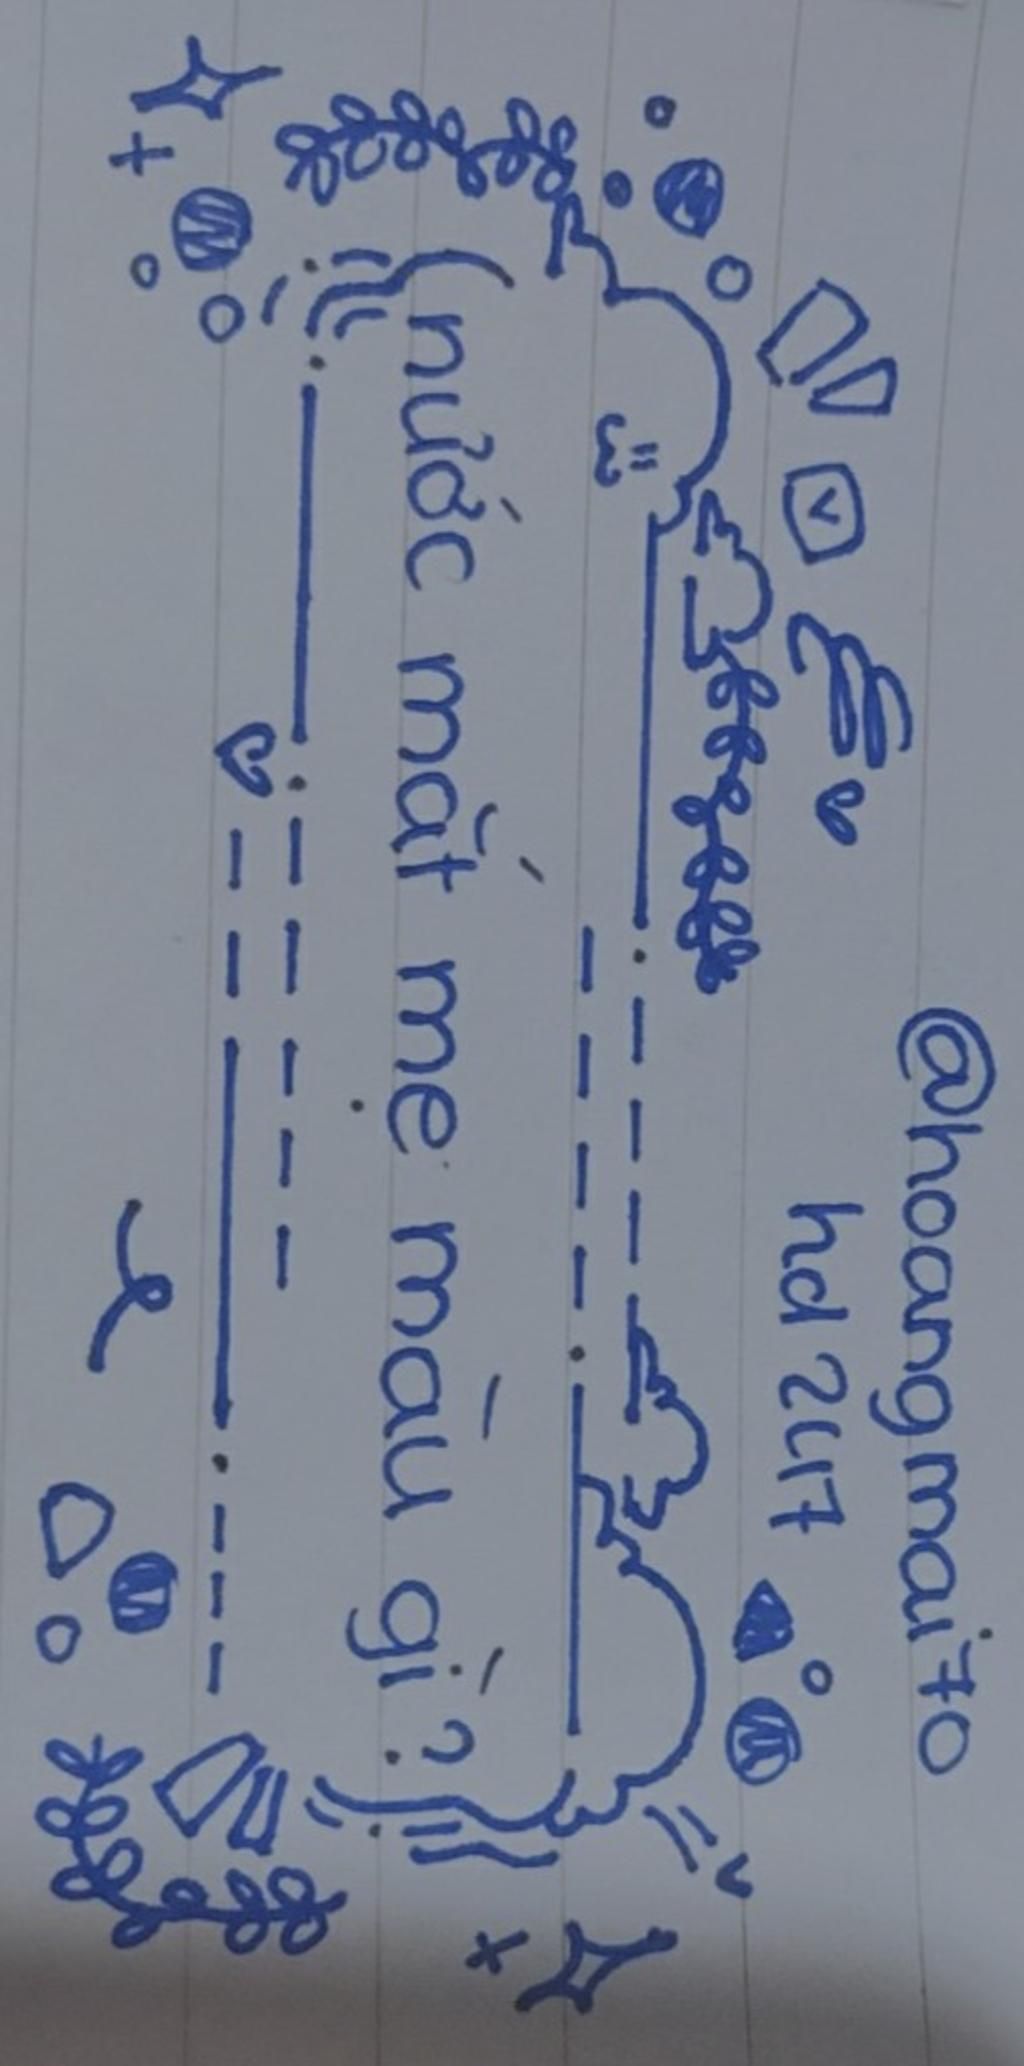 @hoangmai70
hd 2417
nước mắt mẹ màu gì?